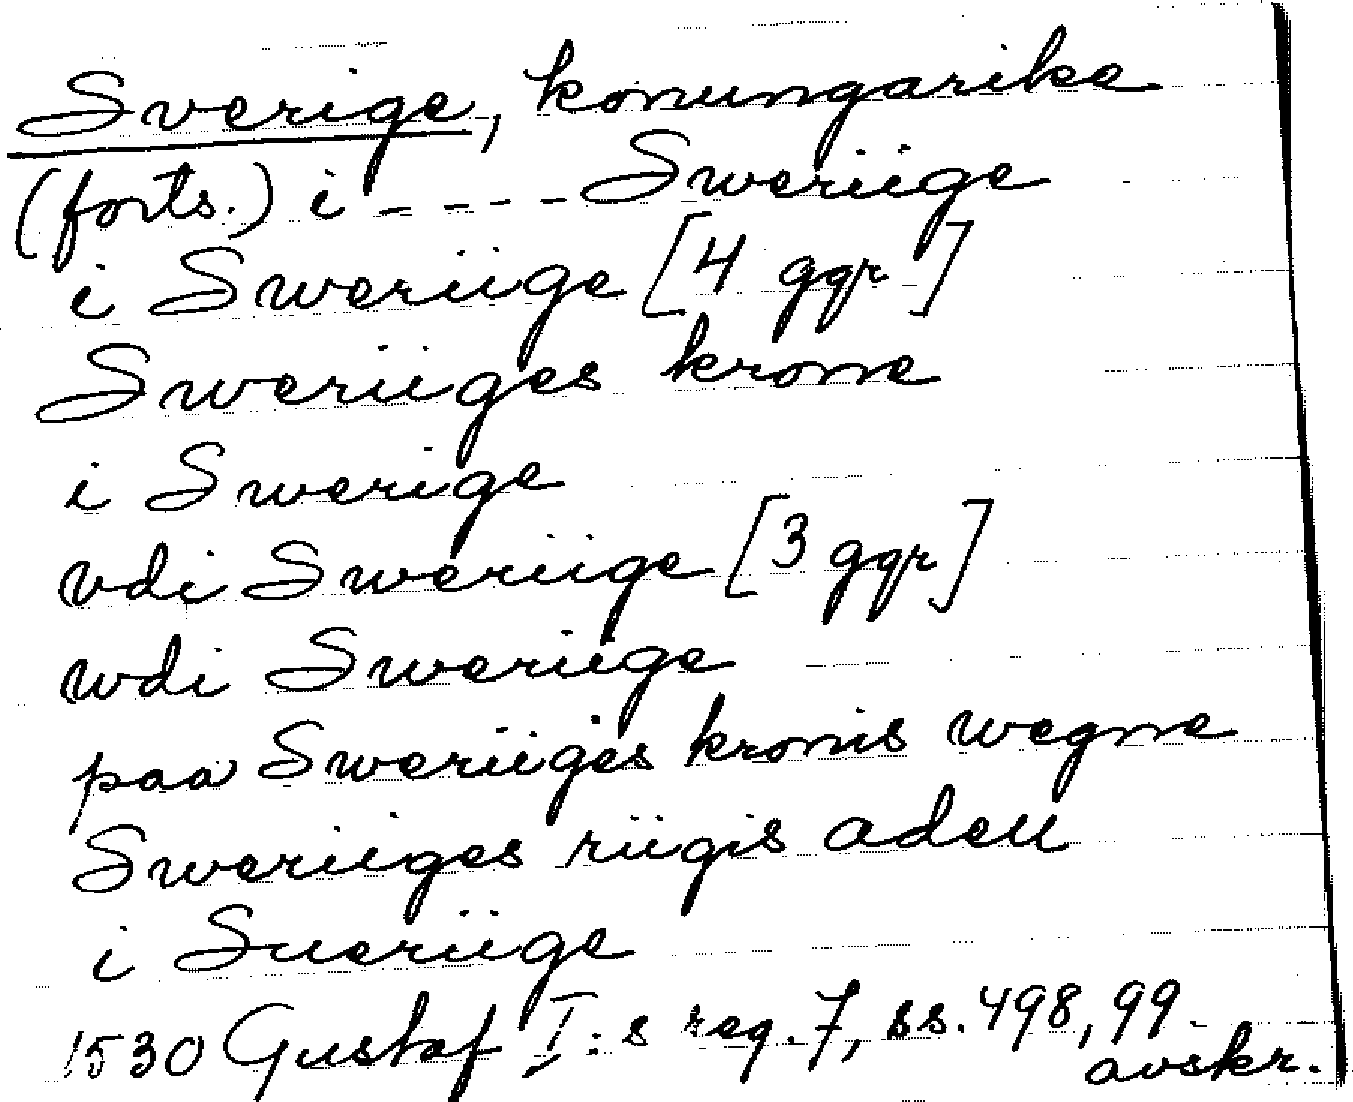 Sverige, konungarike
(forts.) i - - - - Sweriige
i Sweriige [4 ggr]
Sweriiges krone
i Swerige
vdi Sweriige [3 ggr]
wdi Sweriige
paa Sweriiges kronis wegne
Sweriiges riigis adell
i Sueriige
1530 Gustaf I:s reg. 7, ss. 498, 99
avskr.